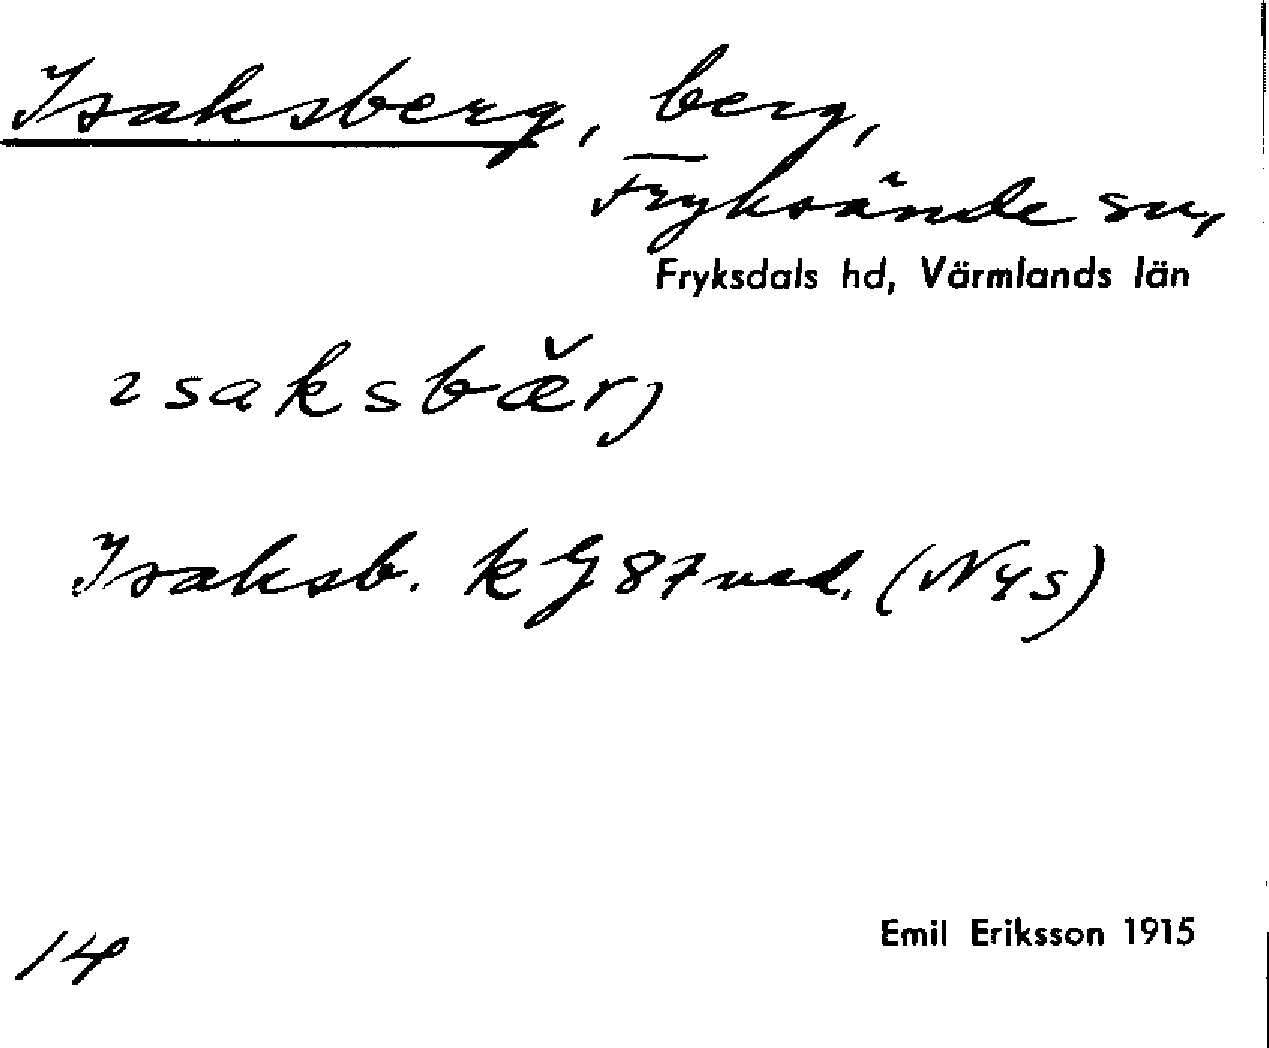 Isaksberg, berg,
Fryksände sn,
Fryksdals hd, Värmlands län
ısaksbæ̌rj
Isaksb. kG 87 ned. (N4s)
14
Emil Eriksson 1915